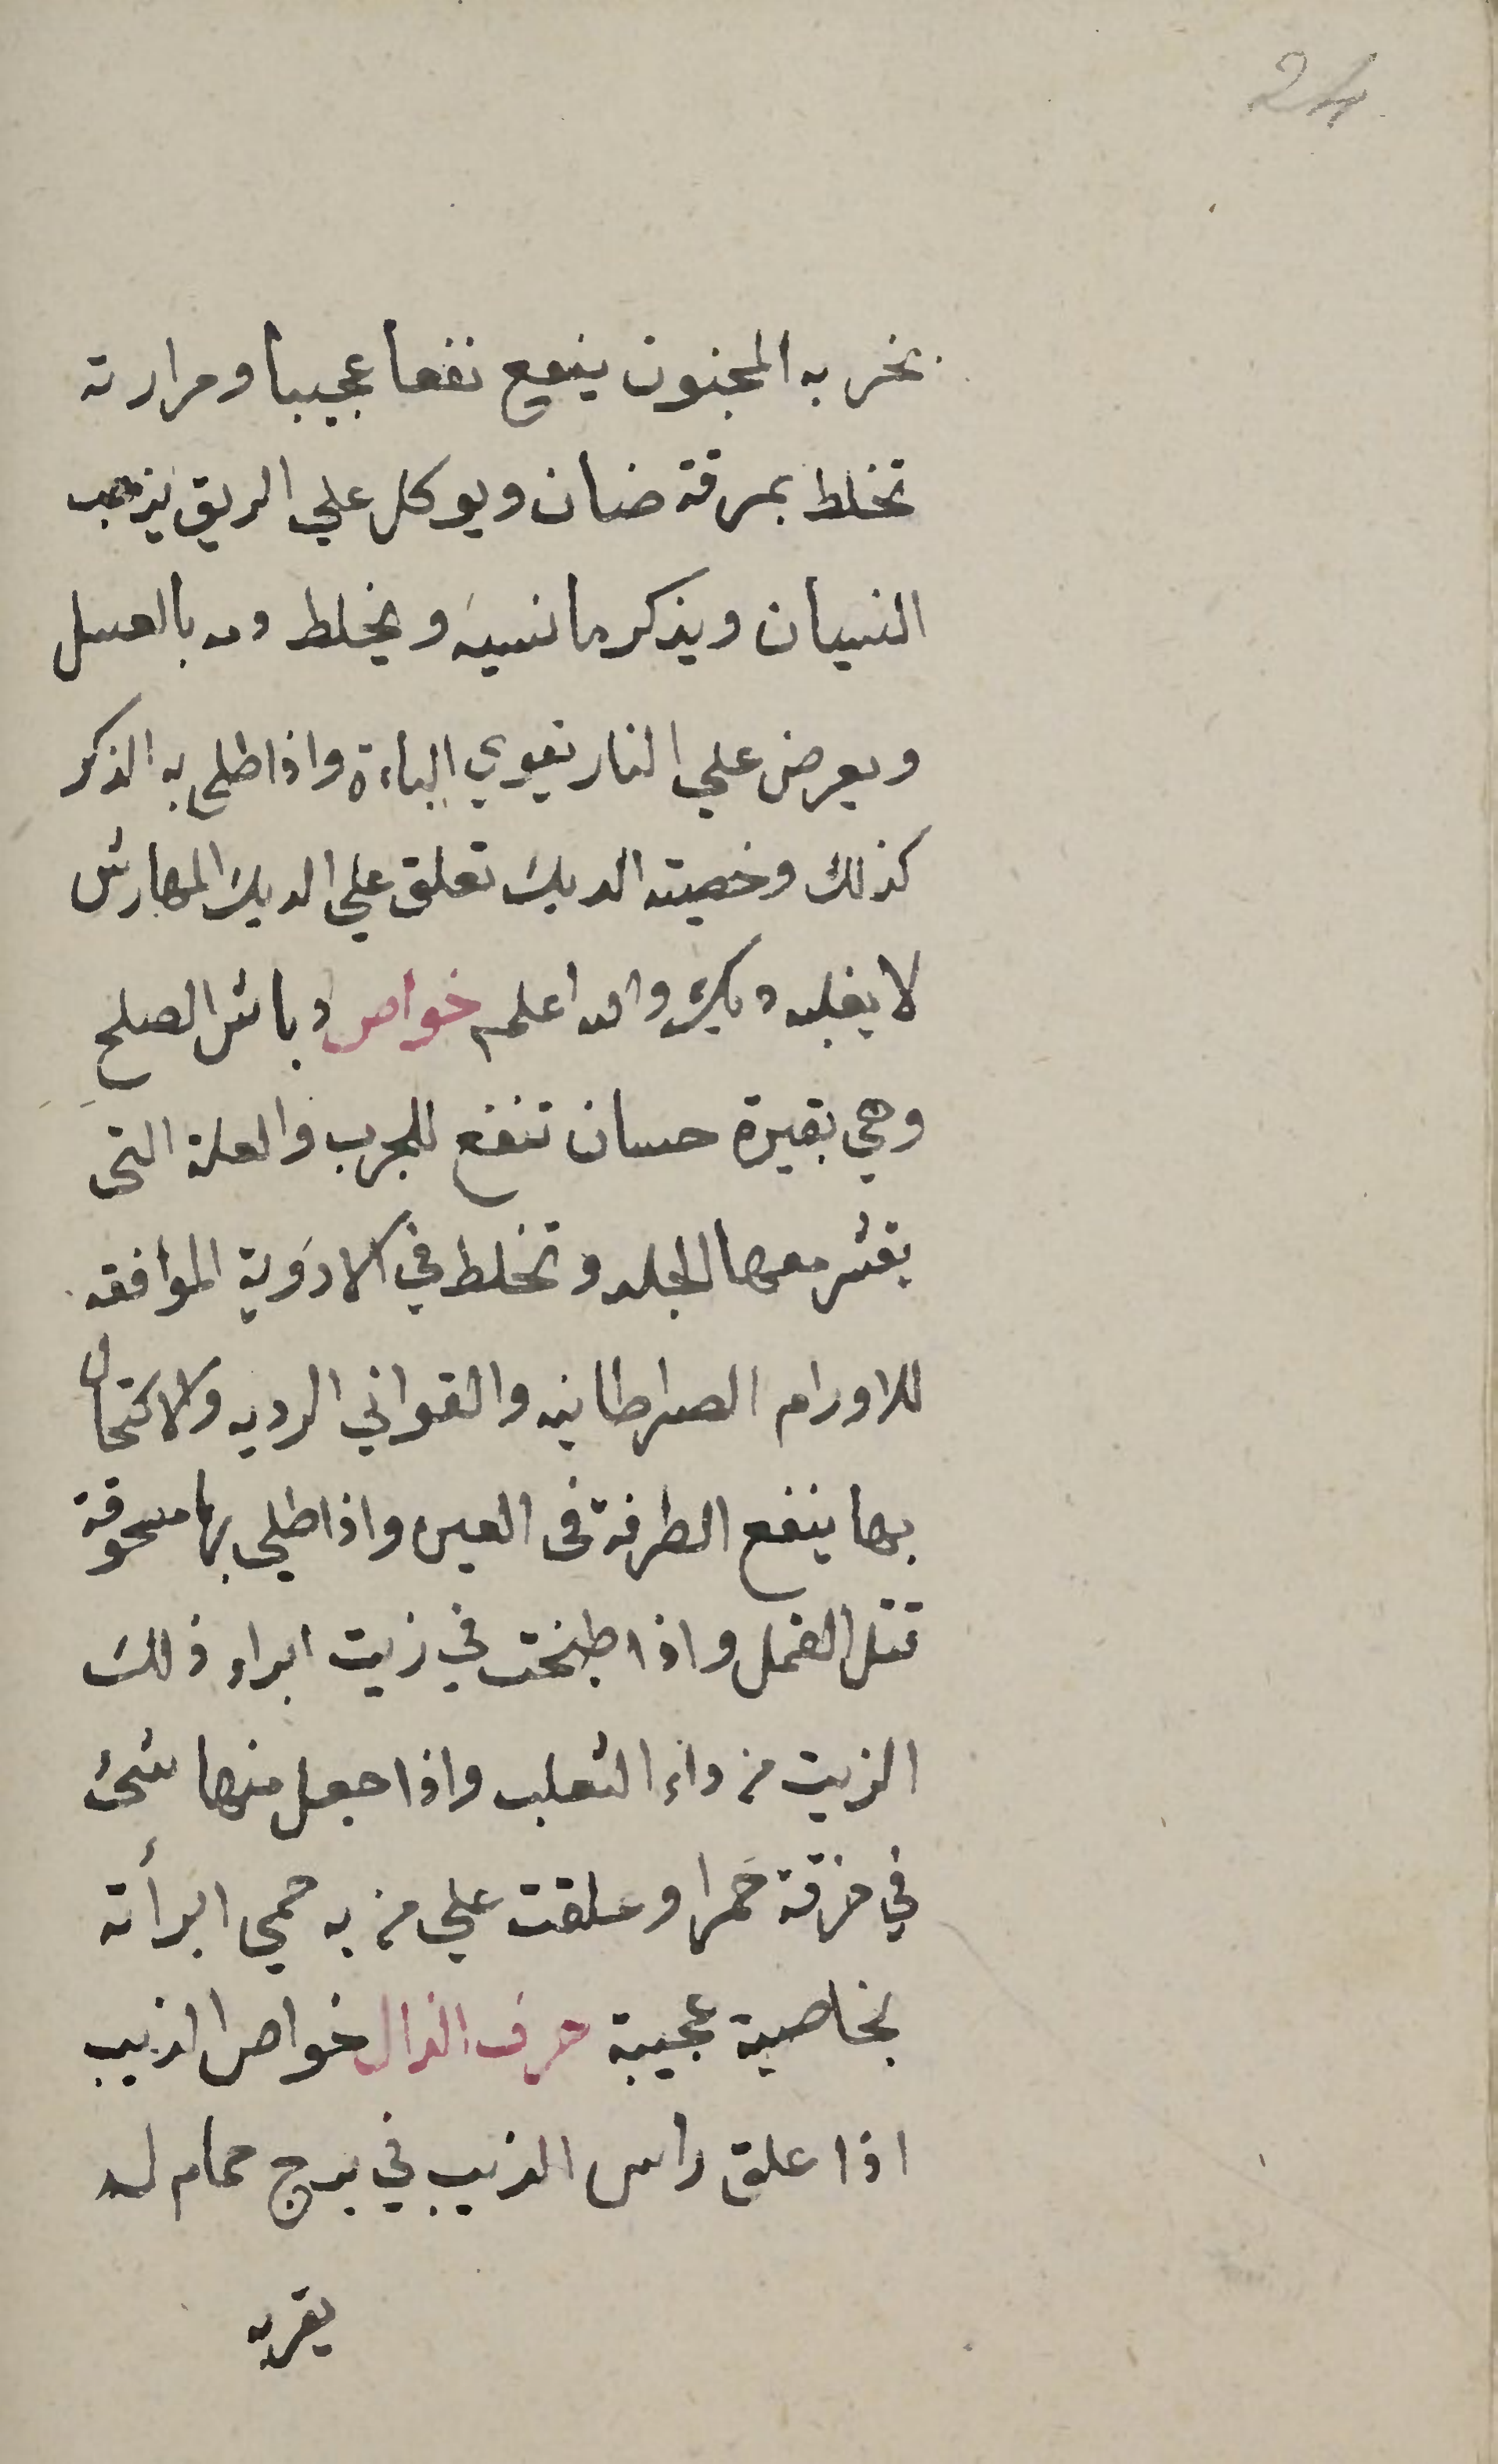 24
يخر به المجنون ينفع نفعا عجيبا ومرارته
تخلط بمرقة ضان ويوكل علي الريق يذهب
النسيان ويذكر ما نسيه ويخلط دمه بالعسل
ويعرض علي النار يقوي الباءة واذا طلي به الذكر
كذلك وخصيته الديك تعلق علي الديك المهارش
لا يغلبه ديك والله اعلم خواص دباش الصلح
وهي بقيرة حسان تنفع للجرب والعلة التى
يقشر معها الجلد وتخلط في الادوية الموافقه
للاورام الصرطانيه والقواني الرديه والاكتحال
بها ينفع الطرفة فى العين واذا طلي بها مسحوقة
تقتل القمل واذا طبخت في زيت ابراء ذلك
الزيت من داء الثعلب واذا جعل منها شئ
في خرقة حمرا وعلقت علي من به حمي ابرأته
بخاصية عجيبة حرف الذال خواص الذيب
اذا علق راس الذيب في برج حمام لم
يقربه